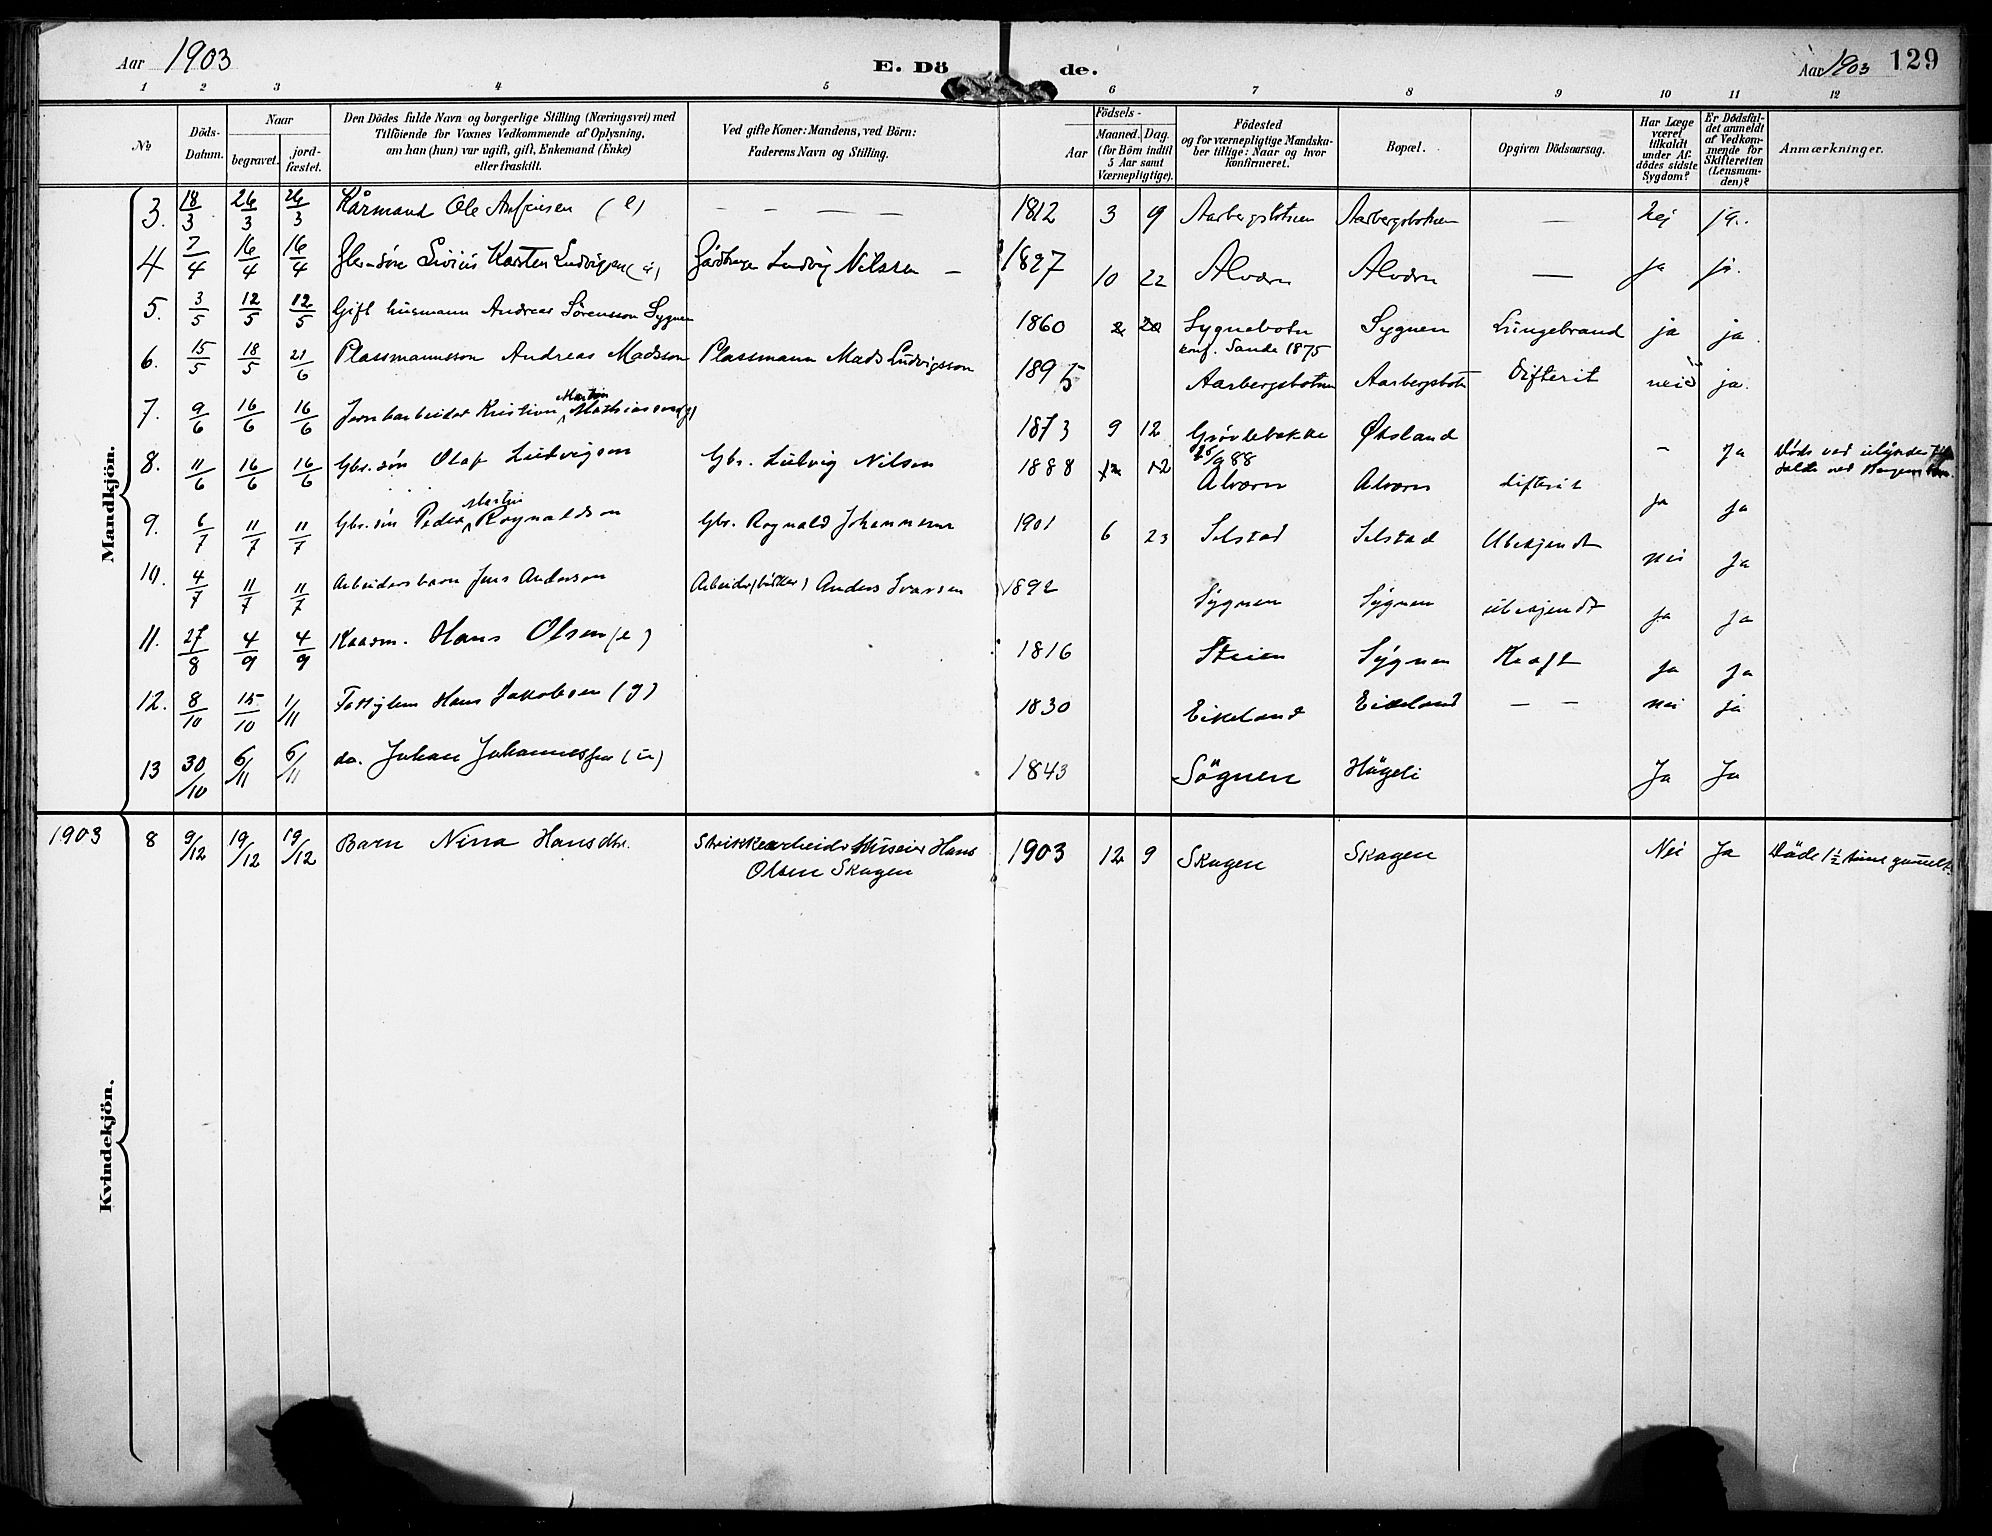 Aar 1903 E. Dö de. Aar 1903 129
1 2 3 4 5 6 7 8 9 10 11 12
№
Döds-Datum.
Naar
begravet.
jord-fæstet.
Den Dödes fulde Navn og borgerlige Stilling (Næringsvei) med
Tilföiende for Voxnes Vedkommende af Oplysning,
om han (hun) var ugift, gift, Enkemand (Enke)
eller fraskilt.
Ved gifte Koner: Mandens, ved Börn:
Faderens Navn og Stilling.
Födsels-
Aar
Maaned. Dag.
(for Börn indtil
5 Aar samt
Værnepligtige).
Födested
og for værnepligtige Mandska-
ber tillige: Naar og hvor
konfirmeret.
Bopæl.
Opgiven Dödsaarsag.
Har Læge
været
tilkaldt
under Af-
dödes sidste
Sygdom?
Er Dödsfal-
det anmeldt
af Vedkom-
mende for
Skifteretten
(Lensman-
den)?
Anmærkninger.
Mandkjön.
3. 18/3 26/3 26/3 Kårmand Ole (e) — — — — 1812 3 9 Aarbergsbotnen Aarbergsbotnen — Nej ja.
4 7/4 16/4 16/4 Karsten Ludvigsen (u) Ludvig Nilssen — 1897 10 22 Alværn Alværn — ja ja.
5. 3/5 12/5 12/5 Gift husmann Andreas Sörensson Sygnen 1860 2 20 Sygnebotn Sygnen Lungebrand ja ja
konf. Sande 1875
6. 15/5 18/5 21/6 Plassmannsson Andreas Madsson Plassmann Mads Ludvigsson 1895 Aarbergsbotnen Aarbergsbotn Difterit nei ja.
7. 9/6 16/6 16/6 Jernbarbeider Kristian Martin Mathiassen (g) 1873 9 12 Grövlebakke Øksland – Ja Döds ved
8. 11/6 16/6 16/6 Gbr. sön Olaf Ludvigson Gbr. Ludvig Nilsen 1888 12 Alværn Alværn difterit Ja Ja
9. 6/7 11/7 11/7 Gbr. sön Peder Martin Rognaldson Gbr. Rognald Johannesen 1901 6 23 Selstad Selstad Ubekjendt nei Ja
10. 4/7 11/7 11/7 Arbeidersbarn Jens Anderson Arbeider Anders Ivarsen 1892 Sygnen Sygnen ubekjendt Ja Ja
11. 27/8 4/9 4/9 Kaarm. Hans Olsen (e) 1816 Steien Sygnen Kræft Ja Ja
12. 8/10 15/10 1/11 Hans Jakobsen (g) 1830 Eikeland Eikeland — — nei ja
13 30/10 6/11 6/11 do. Johan Johannessen (u) 1843 Sögnen Hågeli Ja Ja
Kvindekjön.
1903 8 9/12 19/12 19/12 Barn Nina Hansdtr. Hans 1903 12 9 Skagen Skagen Nei Ja Döde 1½ time gammelt.
Olsen Skagen